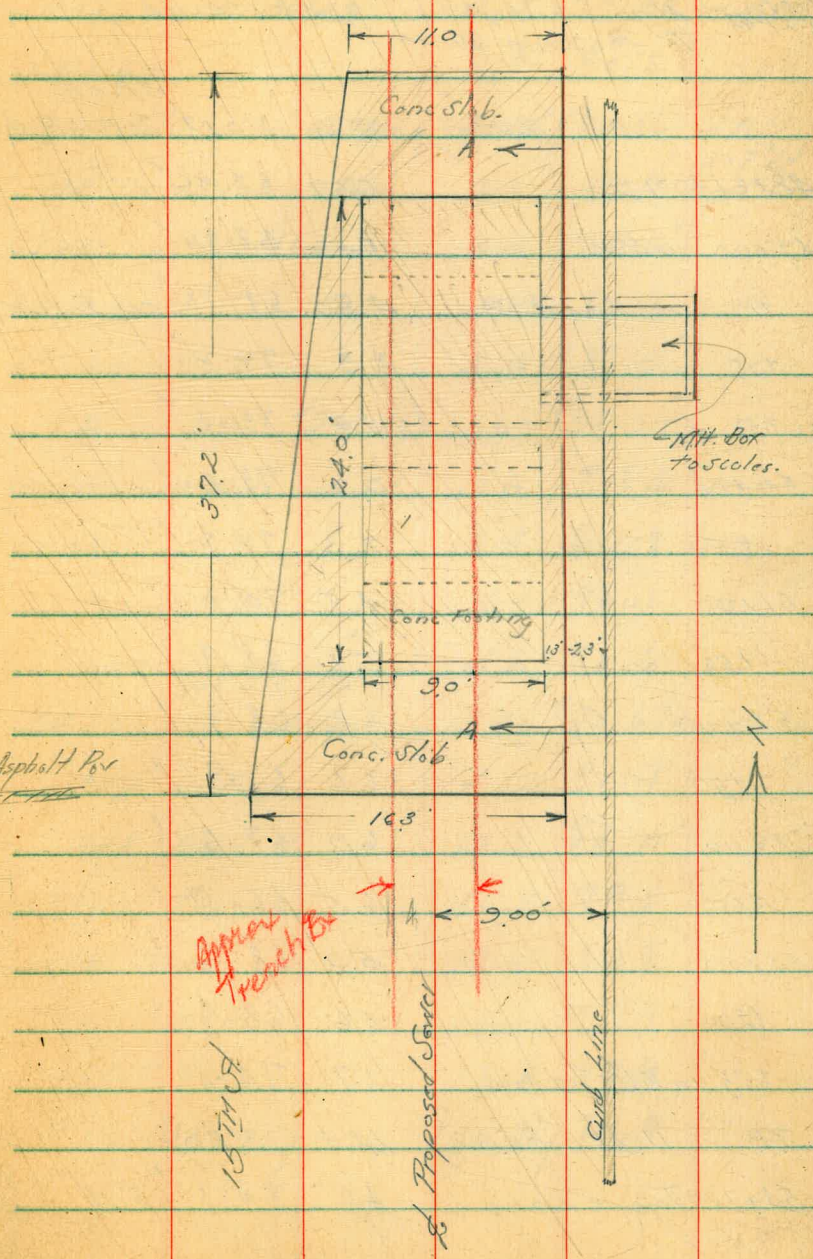 11.0
Conc Slab.
A
37.2'
24.0'
M.H. Box
to scales.
Conc Footing
1.3' 2.3'
9.0'
A
Conc. Slab
Asphalt Pav
16.3
N
9.00'
Approx
Trench
15TH St
℄ Proposed Sewer
Curb Line